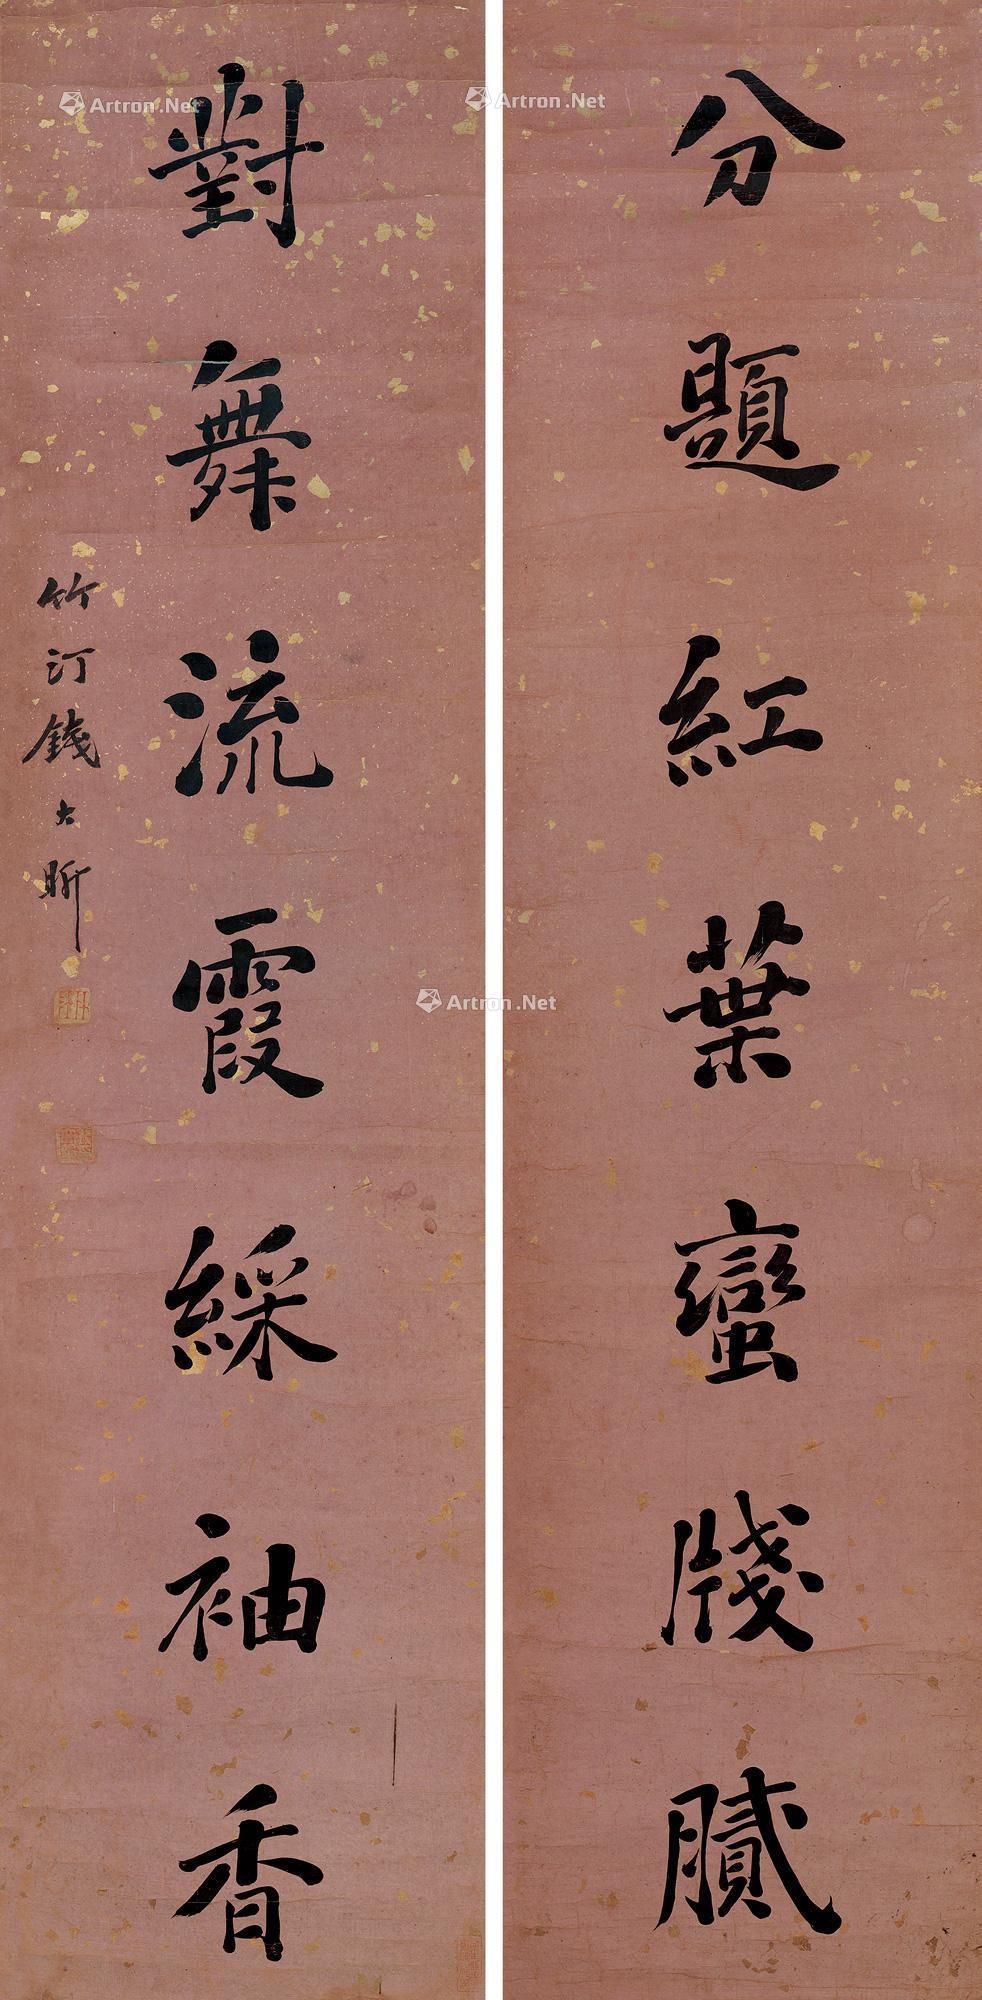 分題紅葉蠻牋膩
對舞流霞綵袖香
竹汀錢大昕
Artron.Net
Artron.Net
Artron.Net